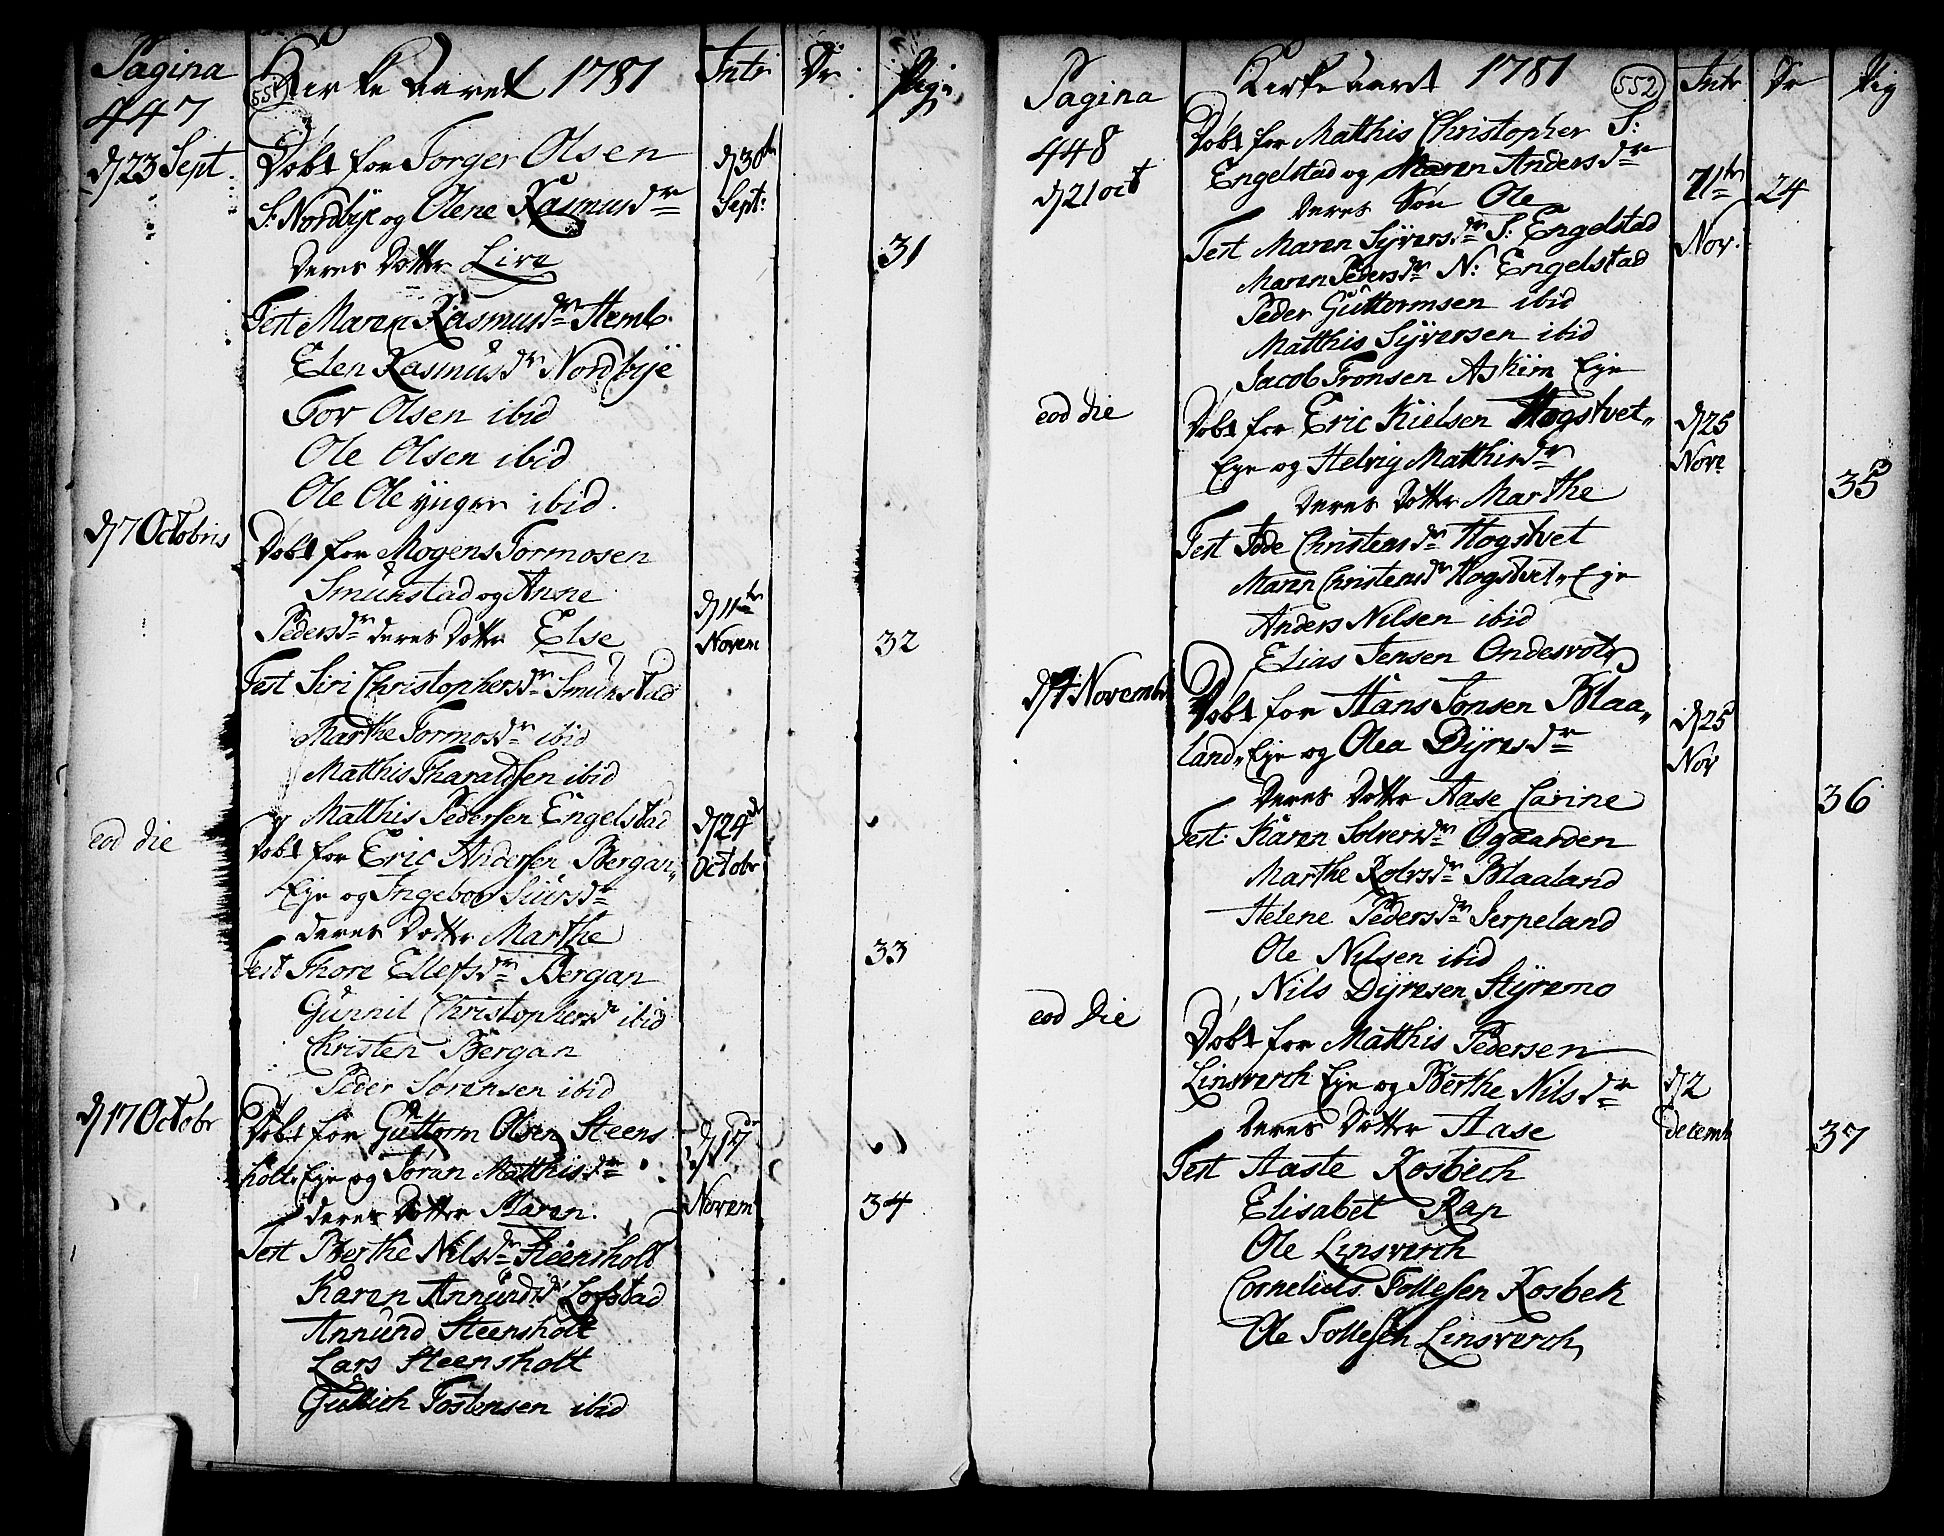 Pagina 447
551 Kirke Aaret 1781 Intr Dr Pige
d 23 Sept. Døbt for Torger Olsen d 30te
S: Nordbÿe og Olene Rasmusdr Sept:
deres Dotter Live 31
Test Maren Rasmusdr Hemb.
Elen Rasmusdr Nordbÿe
Tor Olsen ibid
Ole Olsen ibid
Ole Ole ÿnger ibid.
d 7 Octobris Døbt for Mogens Tormosen
Smünstad og Anne d 11te
Pedersdr deres Dotter Else Novem 32
Test Siri Christophersdr Smünstad
Marthe Tormosdr ibid
Matthis Tharaldsen ibid
Matthis Pedersen Engelstad
eod die Døbt for Eric Andersen Bergan„ d 24de
Eje og Ingebor Siursdr Octobr
deres Dotter Marthe 33
Test Thore Ellefsdr Bergan
Gunnil Christophersdr ibid
Christen Bergan
Peder Sørensen ibid
d 17 Octobr Døbt for Guttorm Olsen Steens
holt„ Eje og Joran Matthisdr d 17
deres Dotter Maren. Novem 34
Test Berthe Nilsdr Steensholt
Karen Annündsd Lofstad
Annünd Steensholt
Lars Steensholt
Gullich Tostensen ibid
Pagina 448
Kirke aaret 1781 552 Intr Dr Pig
d 21 oct Døbt for Matthis Christopher S:
Engelstad og Maren Andersdr
deres Søn Ole 11te Nov. 24
Test Maren Sÿversdr S: Engelstad
Maren Pedersdr N: Engelstad
Peder Guttormsen ibid
Matthis Sÿversen ibid
Jacob Tronsen Askim Eje
eod die Døbt for Eric Kielsen Hogstvet„ d 25
Eje og Helvig Matthisdr Nove
deres Dotter Marthe 35
Test Christensdr Hogstvet
Maren Christensdr Hogstvet„ Eje
Anders Nilsen ibid
Elias Jensen
d 4 Novembr Døbt for Hans Jonsen Blaa„ d 25
land„ Eje og Olea Dÿresdr Nov
deres Dotter Aase Carine 36
Test: Karen Solversdr Ogaarden
Marthe Rolvsdr Blaaland
Helene Pedersdr Serpeland
Ole Nilsen ibid
Nils Dÿresen Stÿremo
eod die Døbt for Matthis Pedersen
Linsverch Eje og Berthe Nilsdr d 2
deres Dotter Aase decemb 37
Test Aaste Kosbech
Elisabet Rap
Ole Linsverch
Cornelius Tollefsen Kosbek
Ole Tollefsen Linsverch